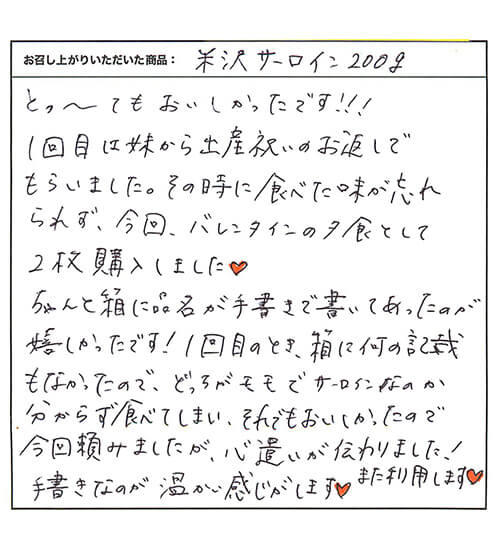 お召し上がりいただいた商品： 米沢サーロイン200g
とっ〜てもおいしかったです!!!
1回目は妹から出産祝いのお返しで
もらいました。その時に食べた味が忘れ
られず、今回、バレンタインの夕食として
2枚購入しました♥
ちゃんと箱に品名が手書きで書いてあったのが
嬉しかったです！1回目のとき、箱に何の記載
もなかったので、どっちがモモでサーロインなのか
分からず食べてしまい、それでもおいしかったので
今回頼みましたが、心遣いが伝わりました！
手書きなのが温かい感じがします♥ また利用します♥